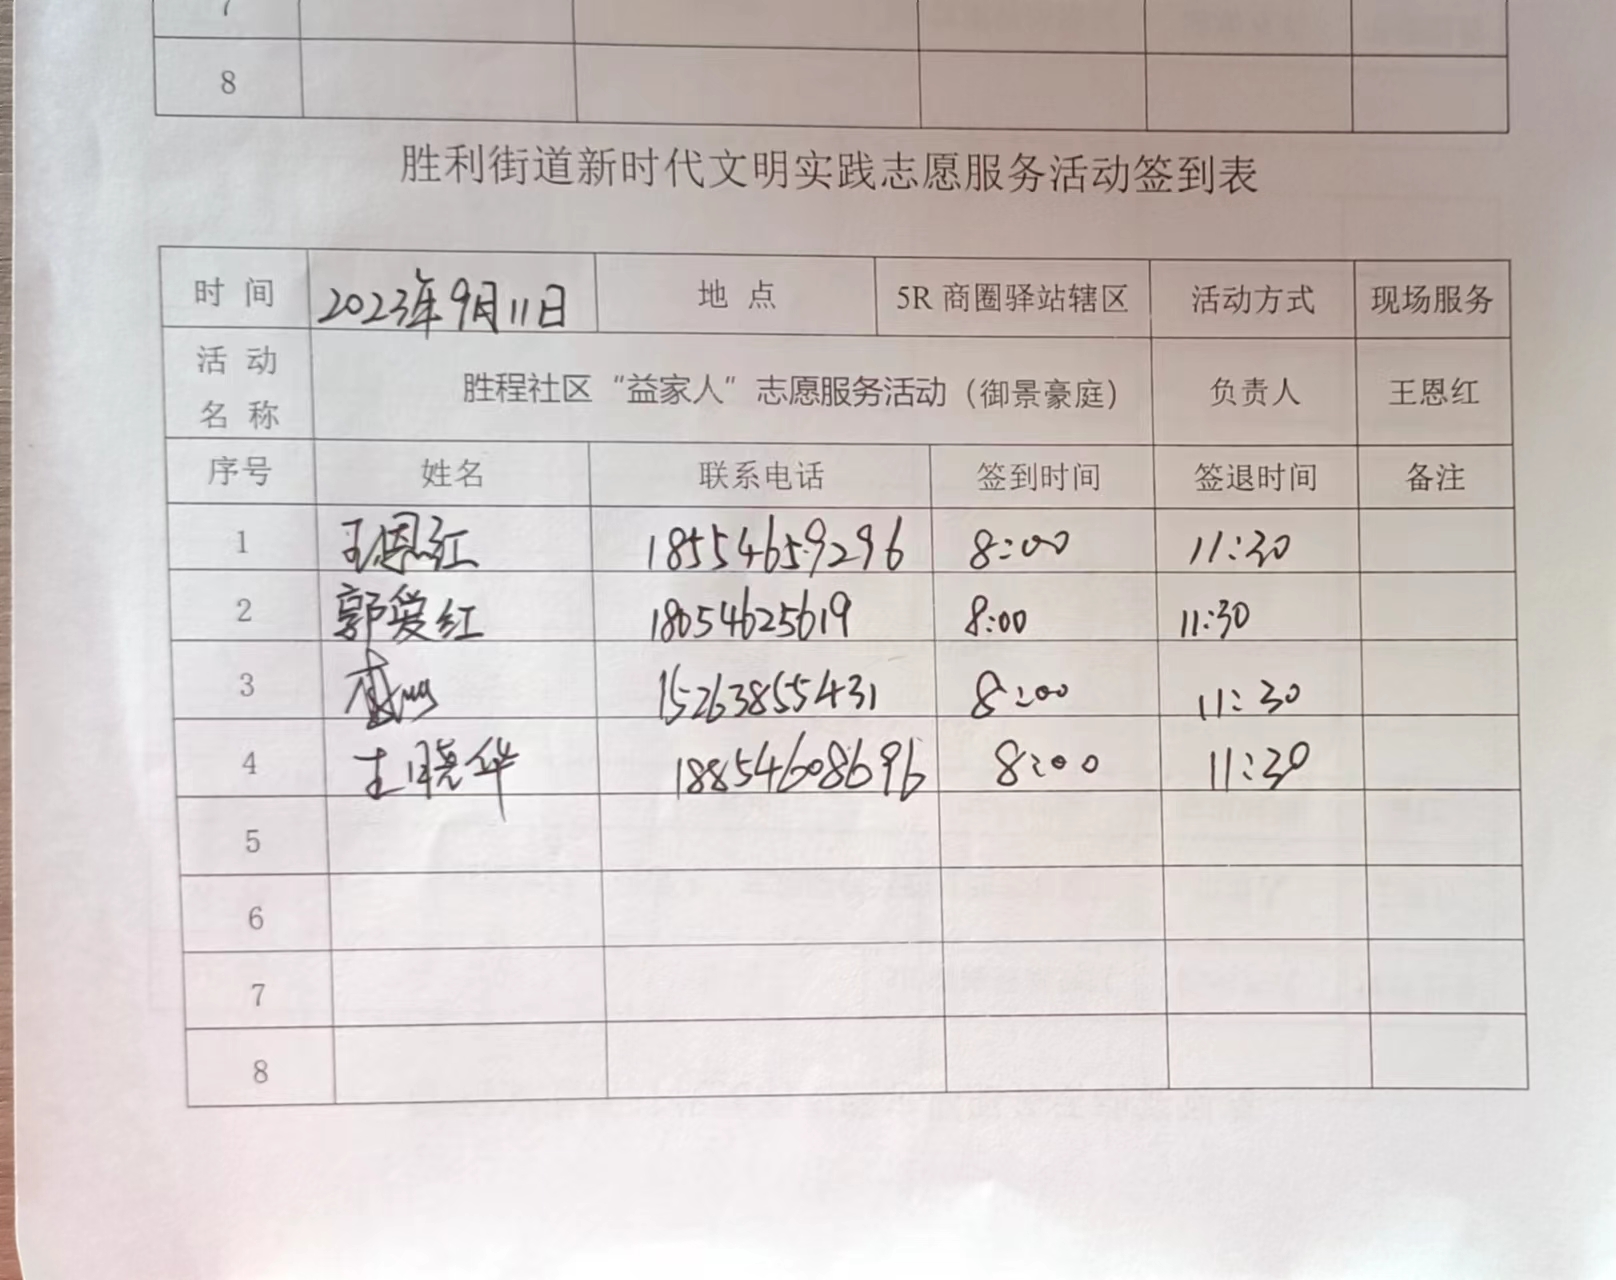 7
8
胜利街道新时代文明实践志愿服务活动签到表
时 间 2023年9月11日 地 点 5R 商圈驿站辖区 活动方式 现场服务
活 动
名 称 胜程社区“益家人”志愿服务活动（御景豪庭） 负责人 王恩红
序号 姓名 联系电话 签到时间 签退时间 备注
1 王恩红 18554659296 8:00 11:30
2 郭爱红 18054625619 8:00 11:30
3 15263855431 8:00 11:30
4 王晓华 18854608696 8:00 11:30
5
6
7
8